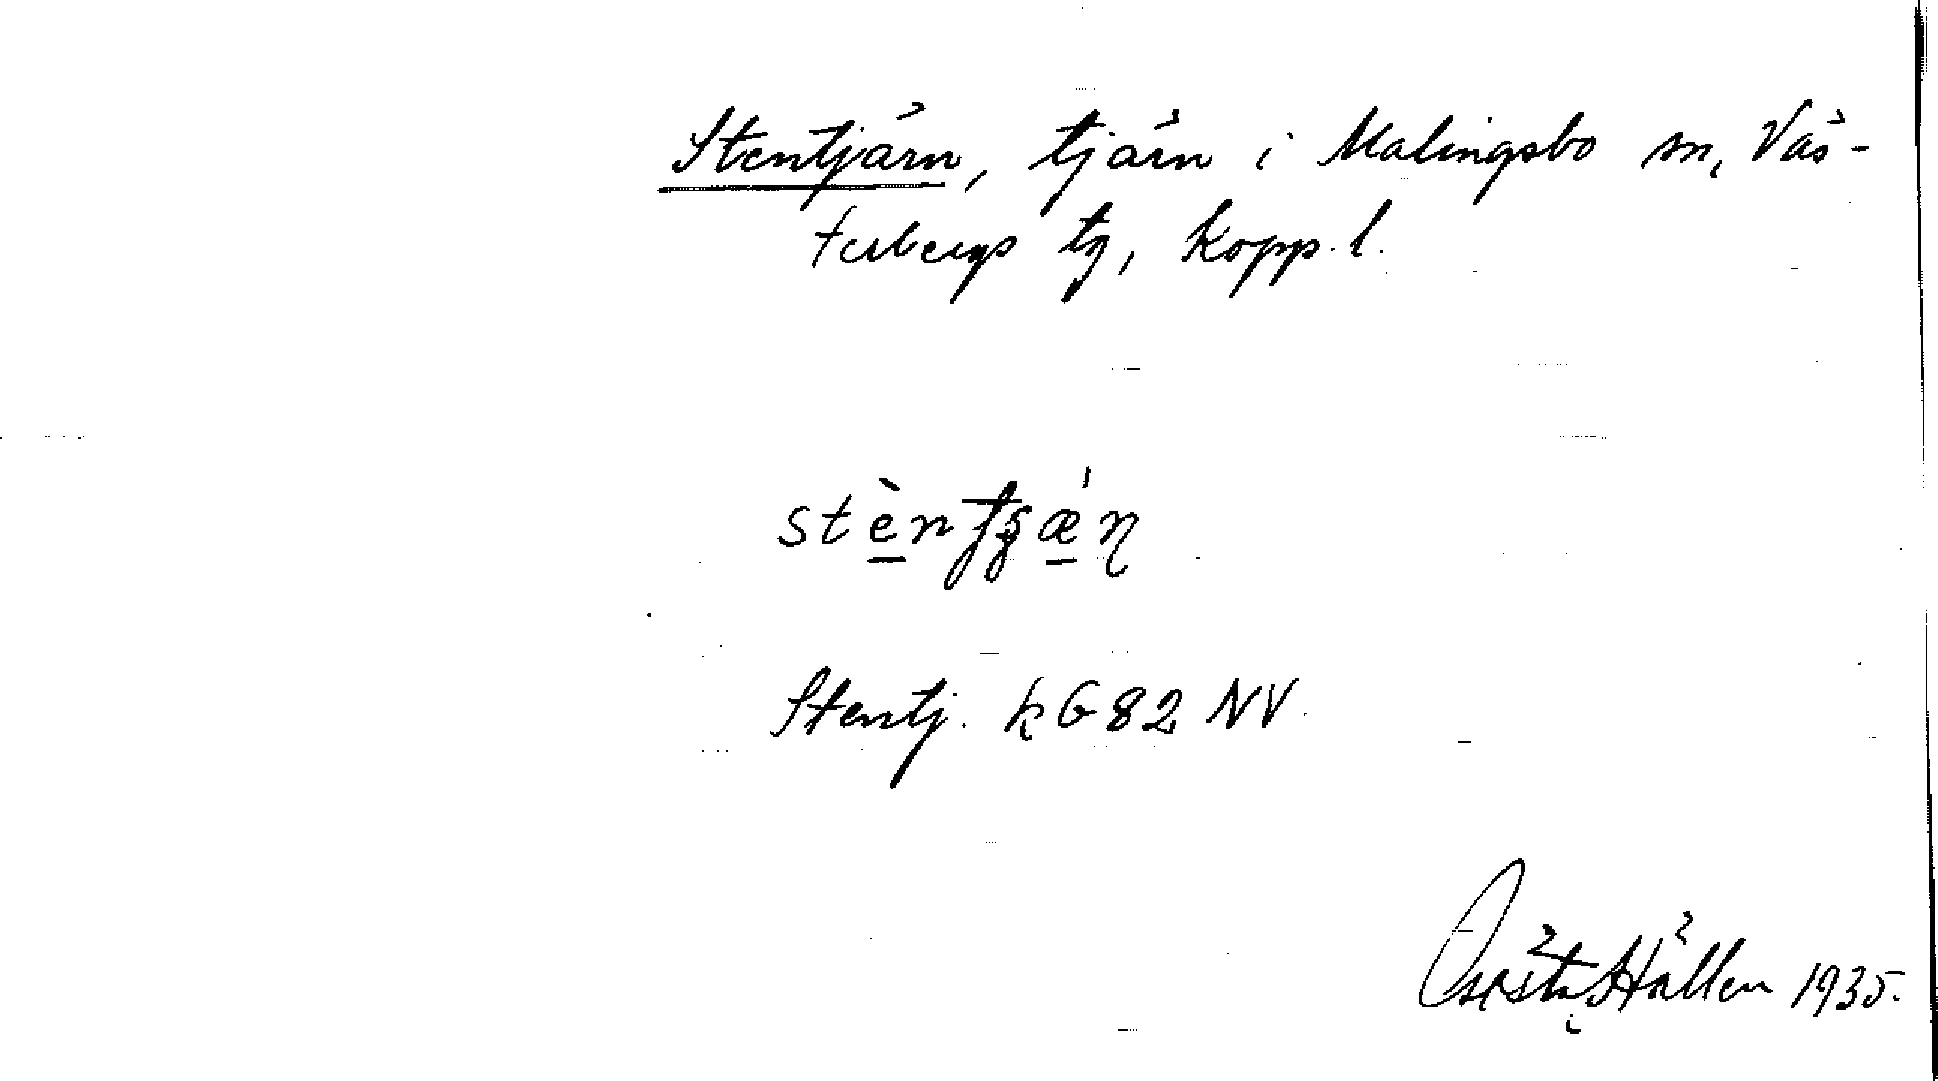 Stentjärn, tjärn i Malingsbo sn, Väs-
terbergs tg, Kopp. l.
Stentj. k G 82 NV.
Hållen 1935.